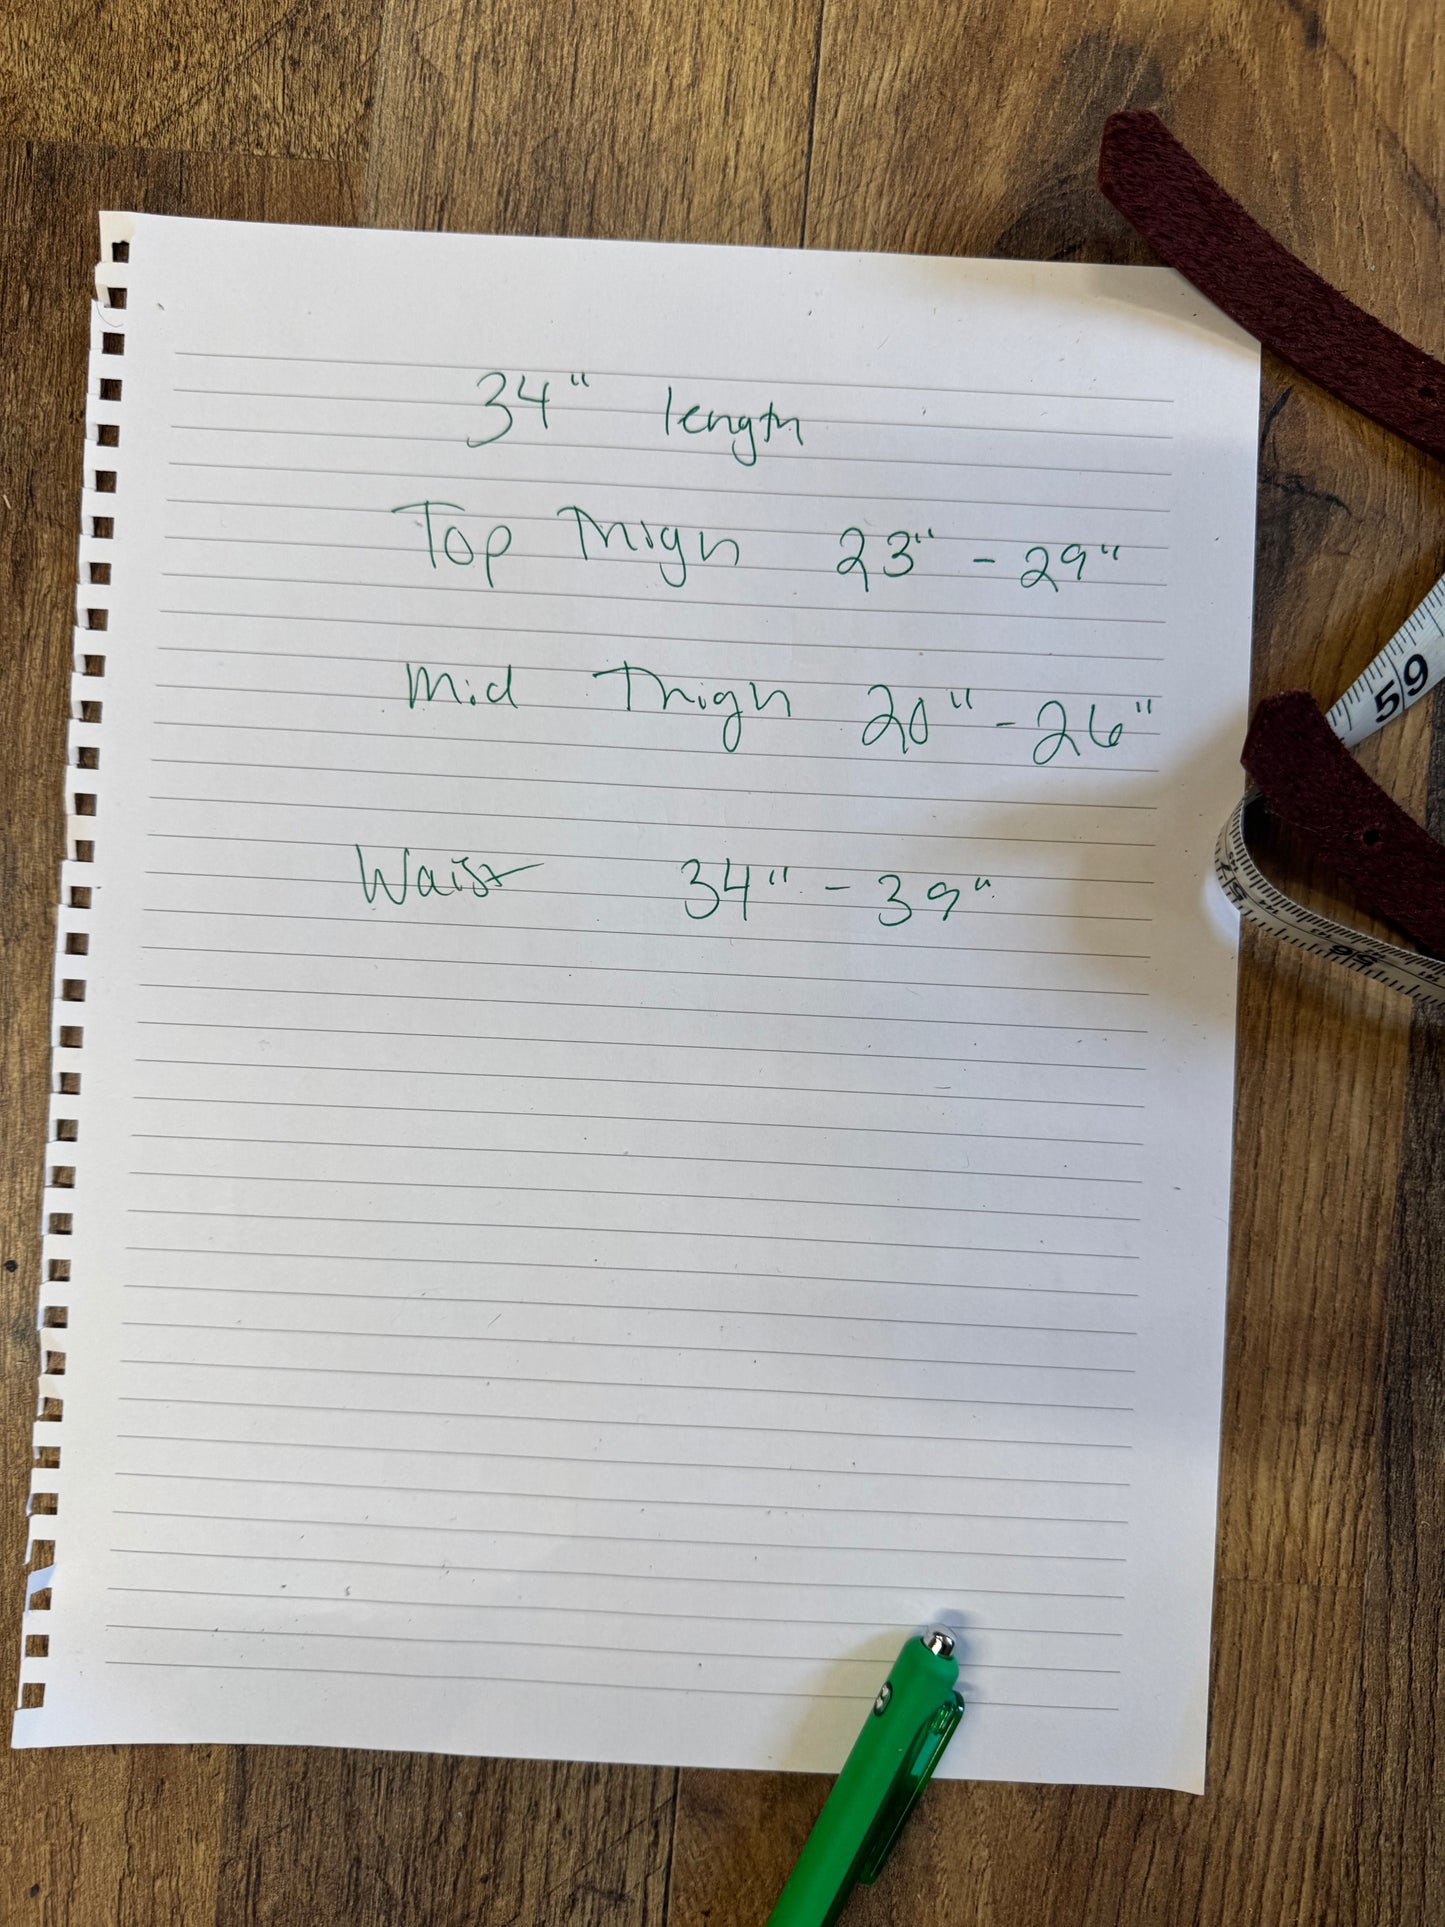 34" length
Top Thigh 23" - 29"
Mid Thigh 20" - 26"
Waist 34" - 39"
59
57
56